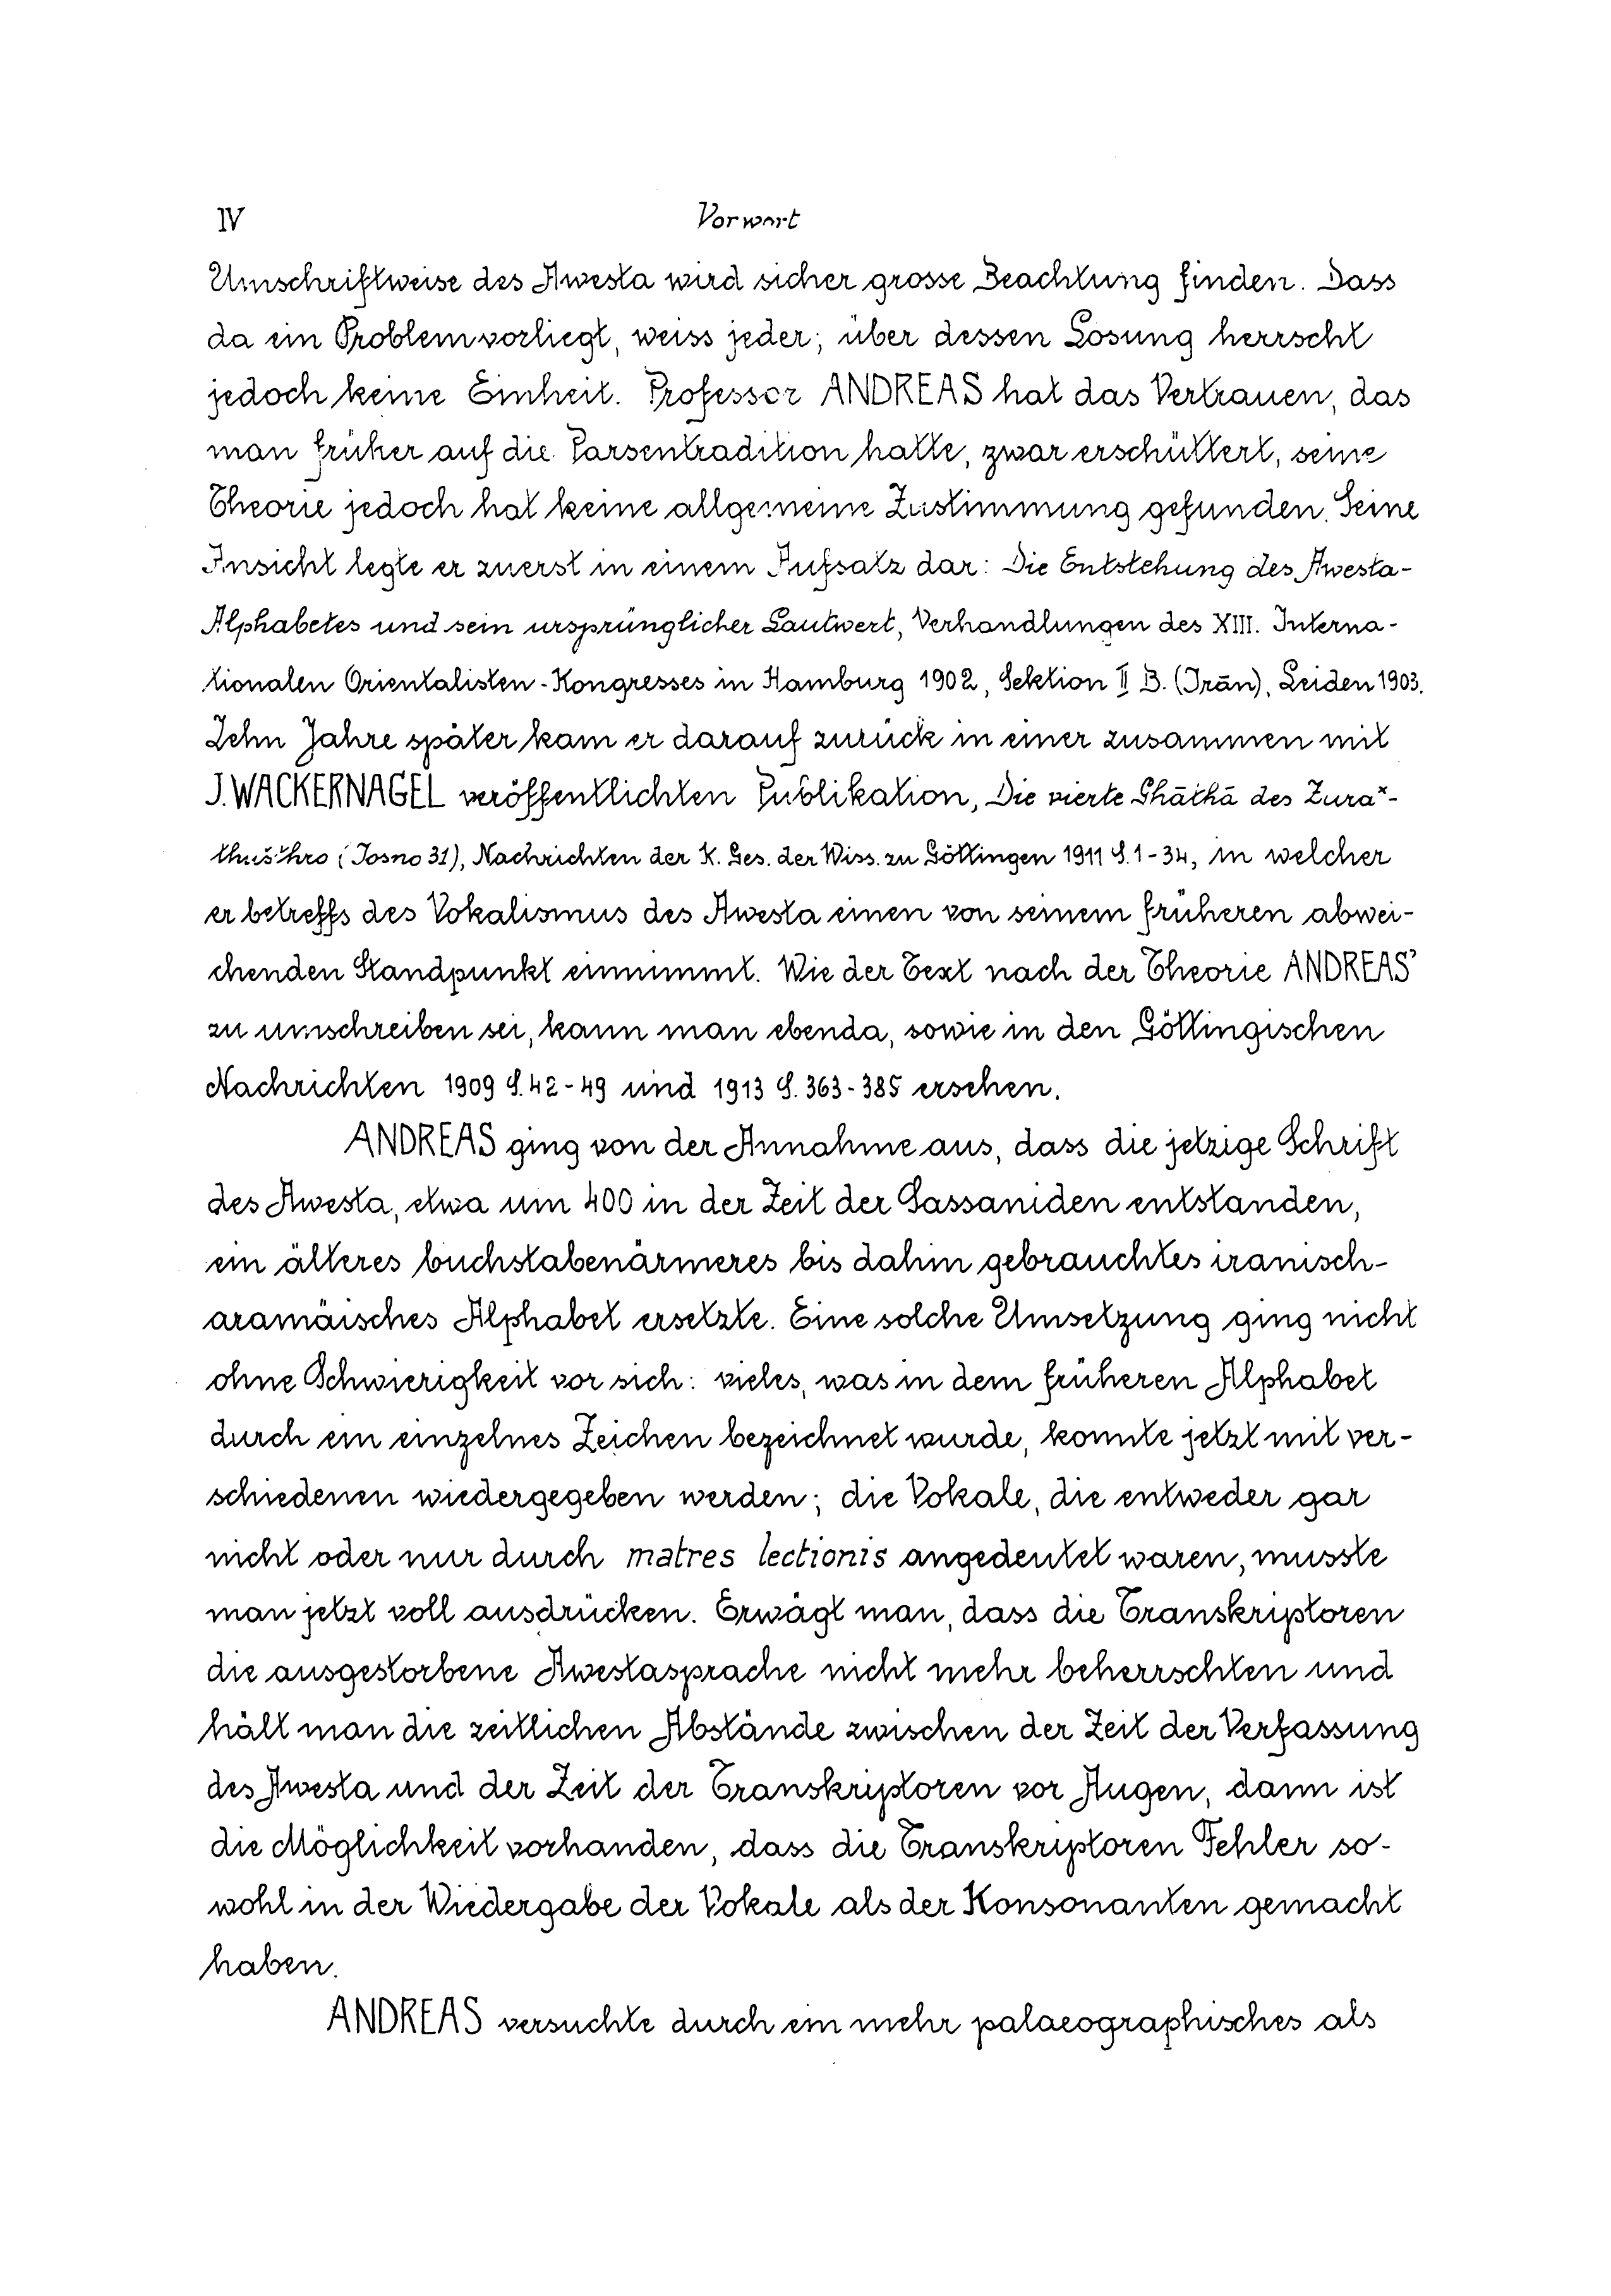 IV Vorwort
Umschriftweise des Awesta wird sicher grosse Beachtung finden. Dass
da ein Problem vorliegt, weiss jeder; über dessen Lösung herrscht
jedoch keine Einheit. Professor ANDREAS hat das Vertrauen, das
man früher auf die Parsentradition hatte, zwar erschüttert, seine
Theorie jedoch hat keine allgemeine Zustimmung gefunden. Seine
Ansicht legte er zuerst in einem Aufsatz dar: Die Entstehung des Awesta-
Alphabetes und sein ursprünglicher Lautwert, Verhandlungen des XIII. Interna-
tionalen Orientalisten-Kongresses in Hamburg 1902, Sektion II B. (Irān), Leiden 1903.
Zehn Jahre später kam er darauf zurück in einer zusammen mit
J. WACKERNAGEL veröffentlichten Publikation, Die vierte Ghāthā des Zuraˣ-
thušthro (Josno 31), Nachrichten der K. Ges. der Wiss. zu Göttingen 1911 S. 1-34, in welcher
er betreffs des Vokalismus des Awesta einen von seinem früheren abwei-
chenden Standpunkt einnimmt. Wie der Text nach der Theorie ANDREAS'
zu umschreiben sei, kann man ebenda, sowie in den Göttingischen
Nachrichten 1909 S. 42-49 und 1913 S. 363-385 ersehen.
ANDREAS ging von der Annahme aus, dass die jetzige Schrift
des Awesta, etwa um 400 in der Zeit der Sassaniden entstanden,
ein älteres buchstabenärmeres bis dahin gebrauchtes iranisch-
aramäisches Alphabet ersetzte. Eine solche Umsetzung ging nicht
ohne Schwierigkeit vor sich: vieles, was in dem früheren Alphabet
durch ein einzelnes Zeichen bezeichnet wurde, konnte jetzt mit ver-
schiedenen wiedergegeben werden; die Vokale, die entweder gar
nicht oder nur durch matres lectionis angedeutet waren, musste
man jetzt voll ausdrücken. Erwägt man, dass die Transkriptoren
die ausgestorbene Awestasprache nicht mehr beherrschten und
hält man die zeitlichen Abstände zwischen der Zeit der Verfassung
des Awesta und der Zeit der Transkriptoren vor Augen, dann ist
die Möglichkeit vorhanden, dass die Transkriptoren Fehler so-
wohl in der Wiedergabe der Vokale als der Konsonanten gemacht
haben.
ANDREAS versuchte durch ein mehr palaeographisches als